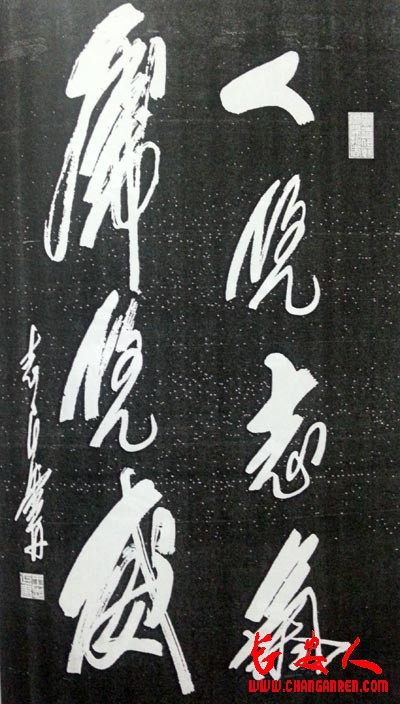 人凭志氣
虎凭威
长安人
WWW.CHANGANREN.COM